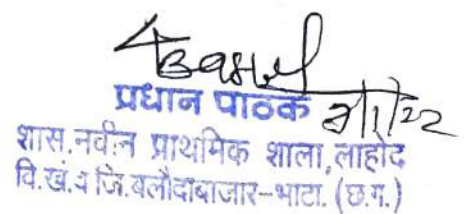 प्रधान पाठक
शास.नवीन प्राथमिक शाला, लाहोद
वि.खं.व जि.बलौदाबाजार-भाटा. (छ.ग.)